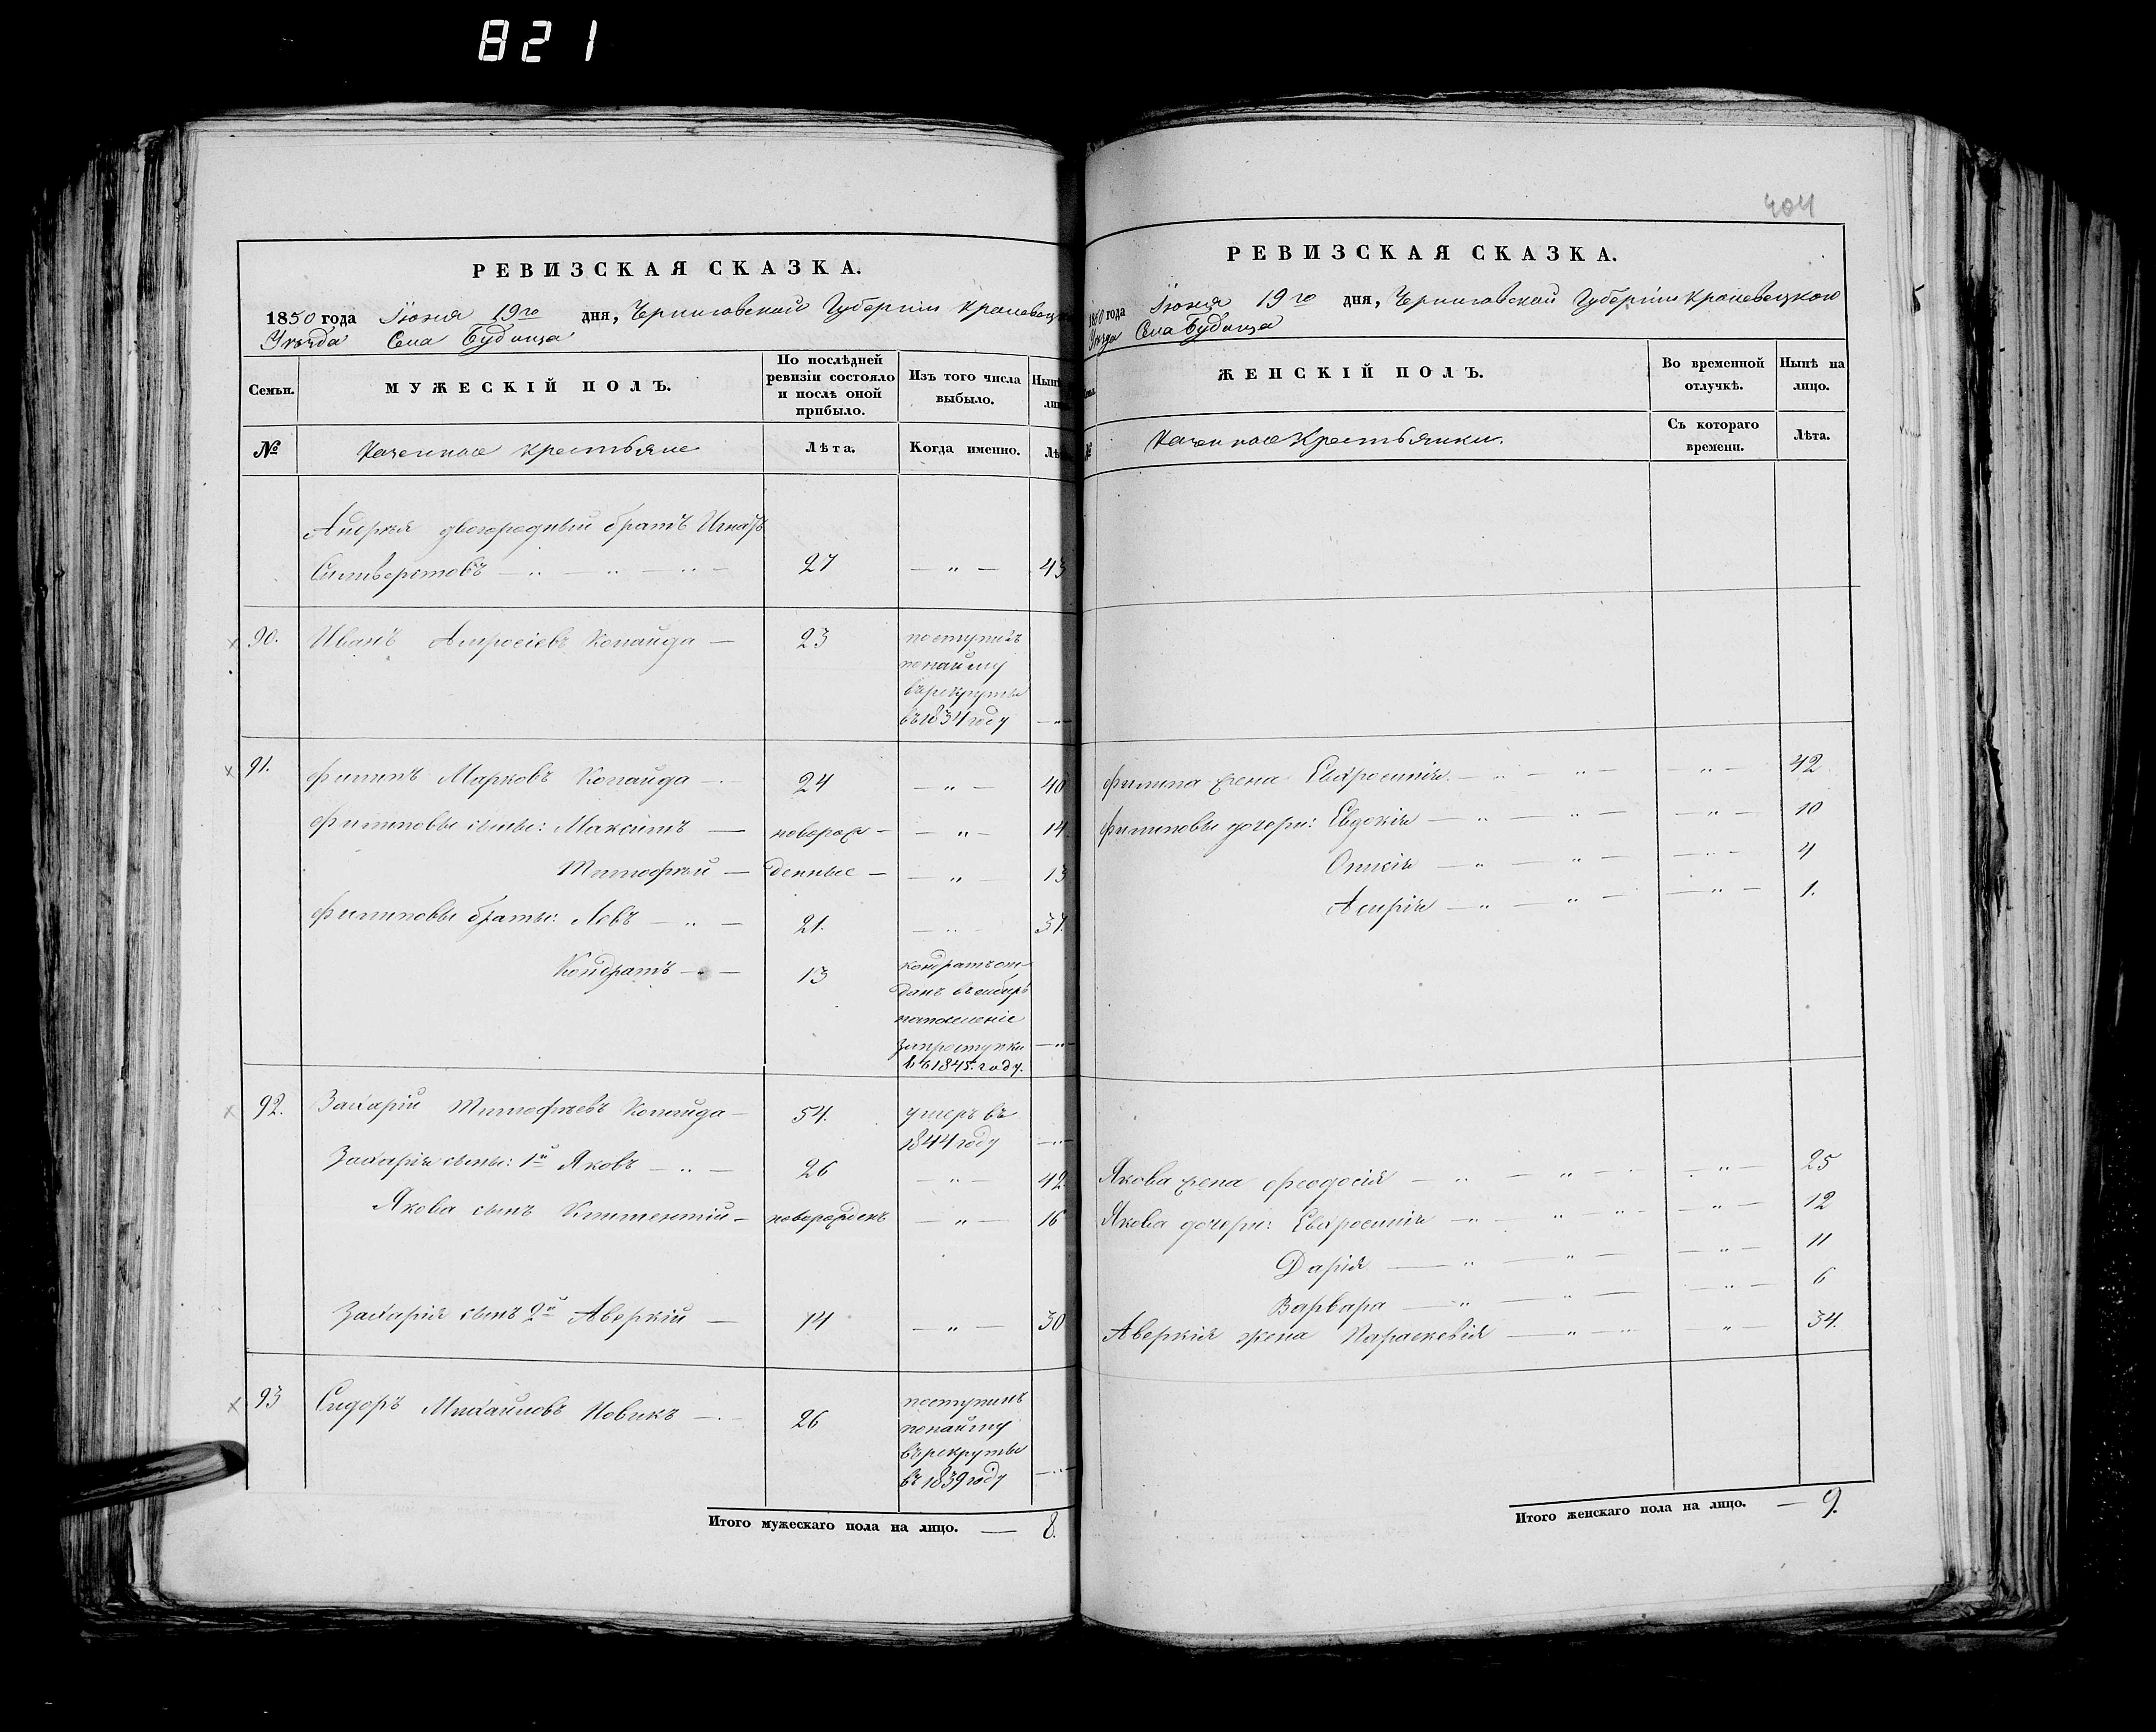 821
404
РЕВИЗСКАЯ СКАЗКА.
1850 года Іюня 19го дня, Черниговской Губерніи Кролевец
Уѣзда Села Будища
Семьи.
МУЖЕСКІЙ ПОЛЪ.
По послѣдней ревизіи состояло и послѣ оной прибыло.
Изъ того числа выбыло.
Нынѣ
лиц
№
Казенные крестьяне
Лѣта.
Когда именно.
Лѣ
Андрея двоюродный братъ Игнатъ
Силиверстовъ — " — " — " — 27 — " — 43
90. Иванъ Амросіевъ Копайда — 23 поступилъ
понайму
въ рекруты
въ 1834 году — " —
91. Филипъ Марковъ Копайда — 24 — " — 40
Филиповы сыны: Максимъ — новорож — — " — 14
Тимофѣй — денные — — " — 13
Филиповы браты: Левъ — " — 21. — " — 37.
Кондратъ — " — 13 кондратъ от-
данъ въ сибирь
на поселеніе
за проступки — " —
въ 1845. году.
92. Захарій Тимофѣевъ Копайда — 54. умеръ въ
1844 году — " —
Захарія сыны: 1й Яковъ — " — 26 — " — 42.
Якова сынъ Климентій — новорожденъ — " — 16
Захарія сынъ 2й Аверкій — 14 — " — 30
93 Сидоръ Михайловъ Новикъ — " — 26 поступилъ
понайму
въ рекруты
въ 1839 году — " —
Итого мужескаго пола на лицо. — 8.
РЕВИЗСКАЯ СКАЗКА.
1850 года Іюня 19го дня, Черниговской Губерніи Кролевецкого
Уѣзда Села Будища
ЖЕНСКІЙ ПОЛЪ.
Во временной отлучкѣ.
Нынѣ на лицо.
№
Казенные Крестьянки.
Съ котораго времени.
Лѣта.
Филипа жена Евфросинія — " — " — — " — 42
Филиповы дочери: Евдокія — " — " — — " — 10
— " — " — — " — 4
— " — " — — " — 1.
Якова жена Феодосія — " — " — — " — 25
Якова дочери: Евфросинія — " — " — — " — 12
Дарія — " — " — — " — 11
Варвара — " — " — — " — 6
Аверкія жена Параскевія — " — " — " — 34.
Итого женскаго пола на лицо. — 9.